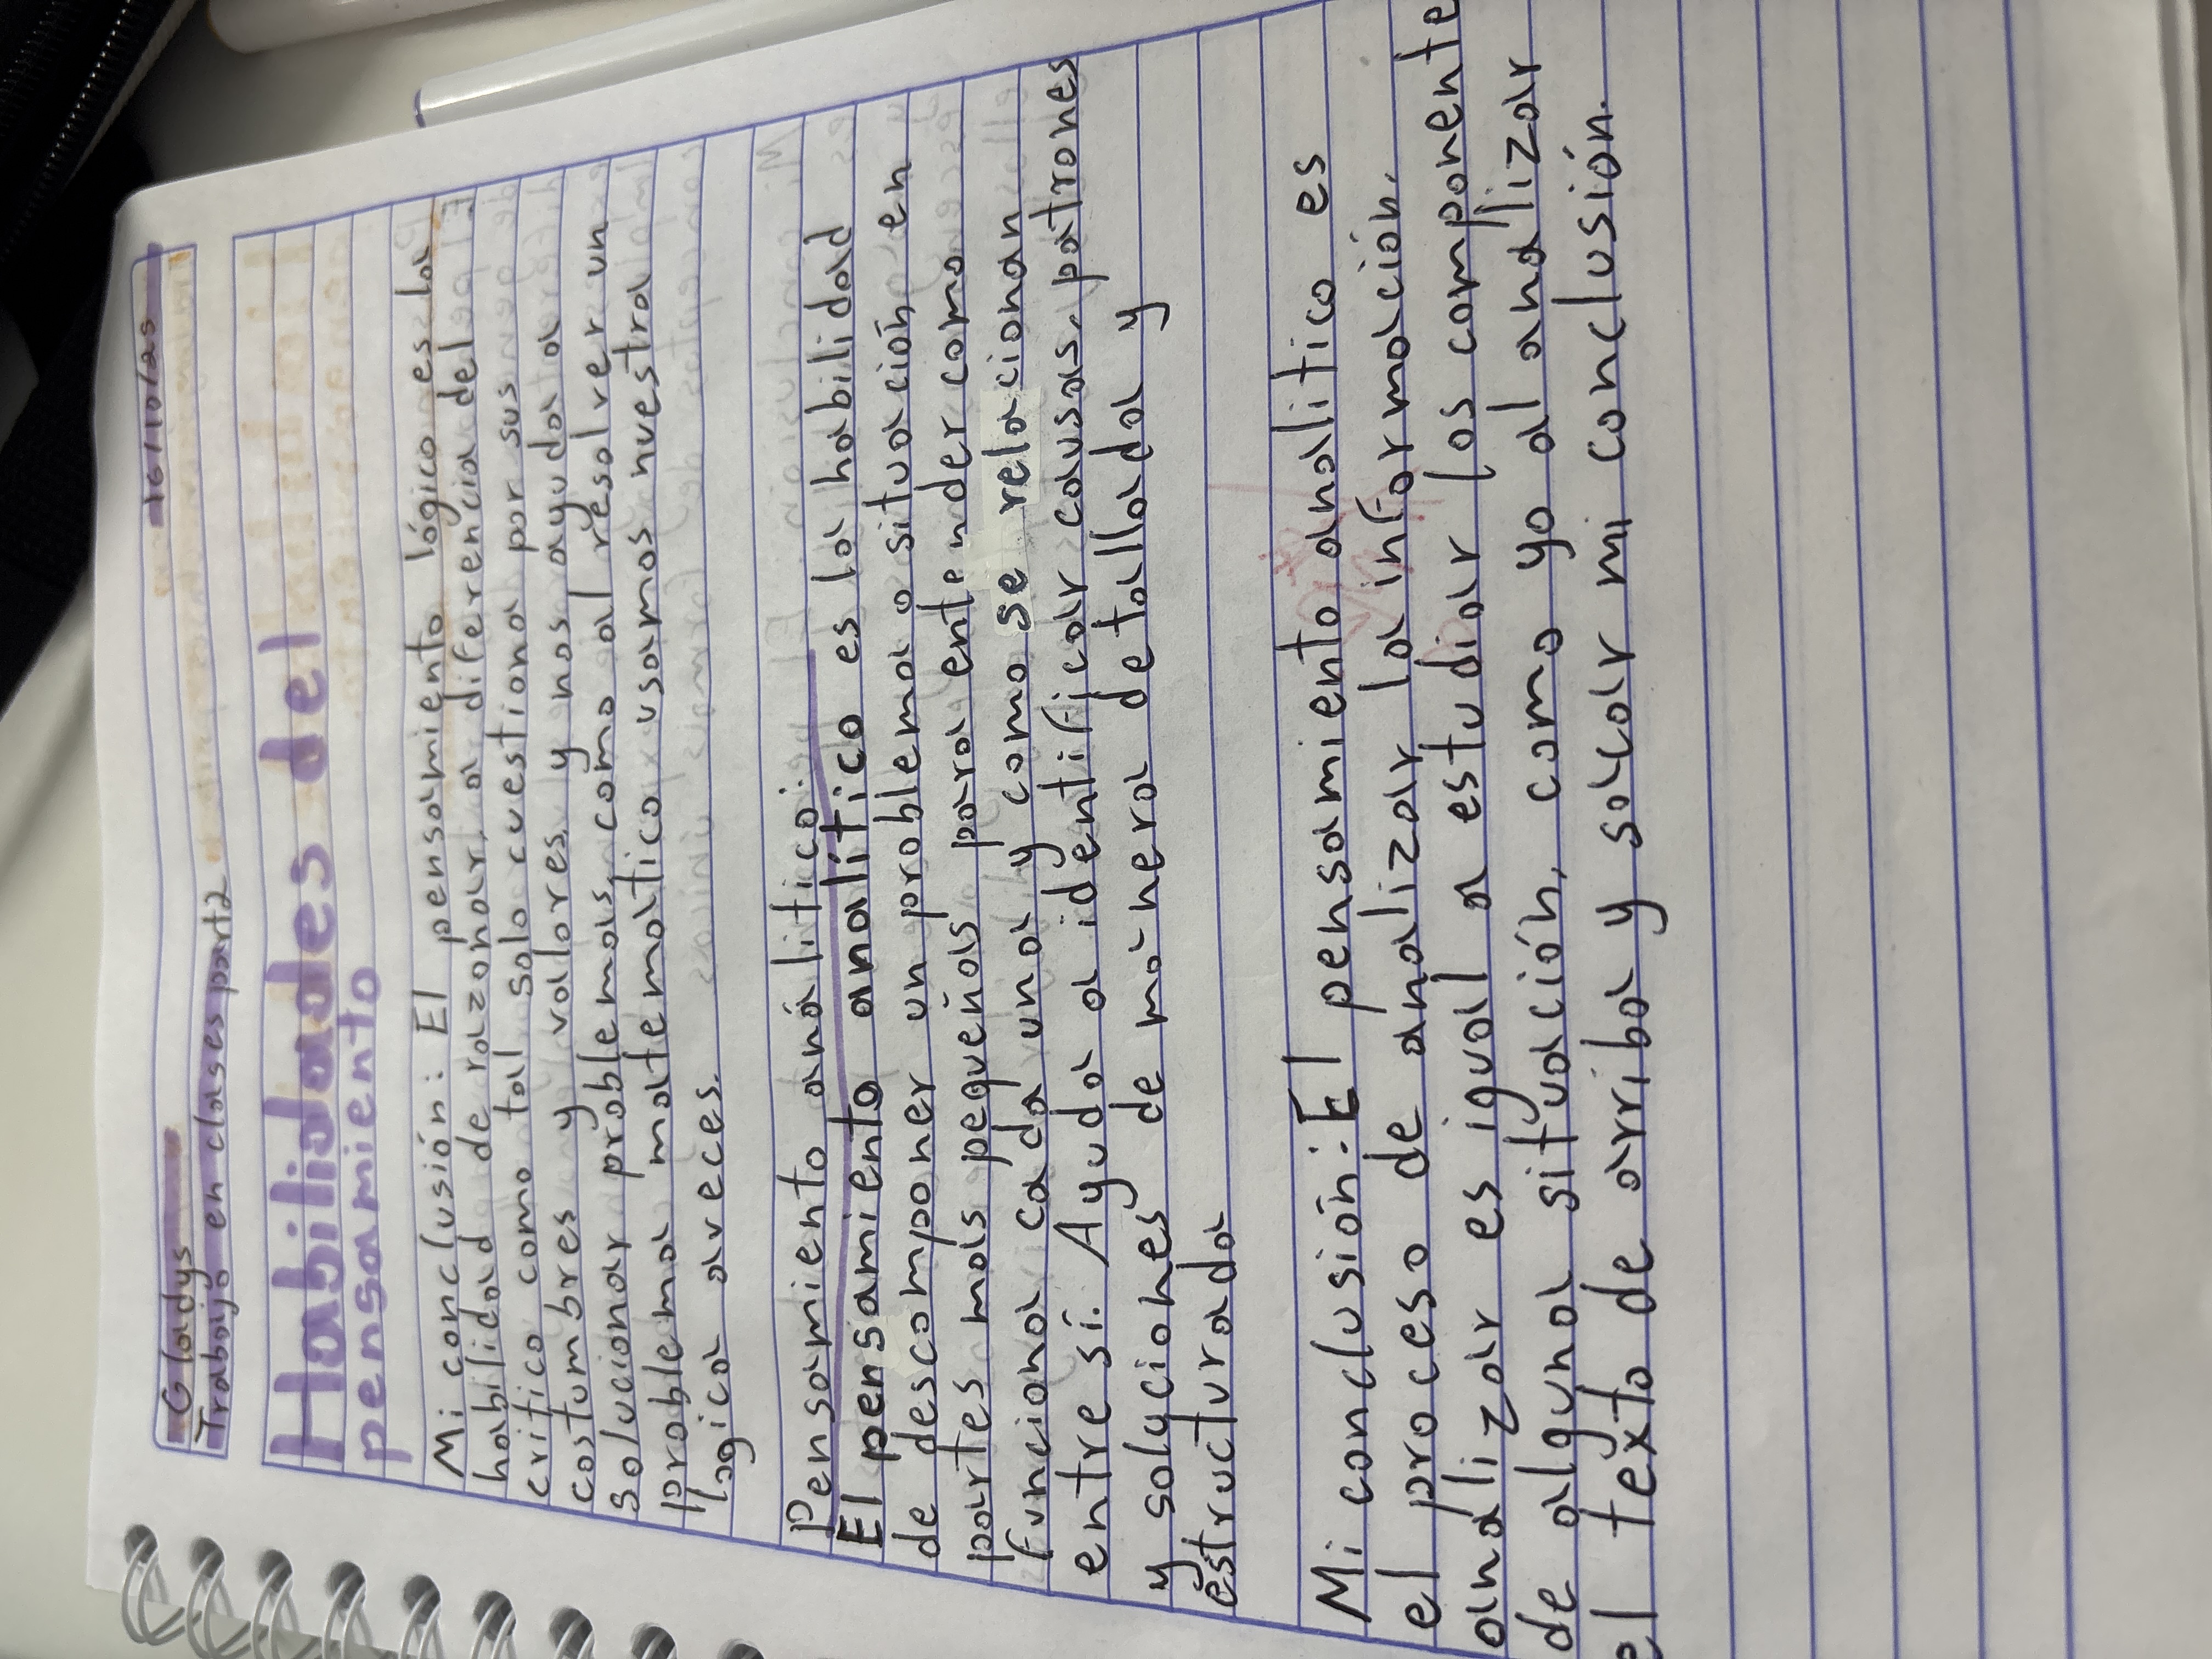 Gladys 16/10/25
Trabajo en clases part2
Habilidades del
pensamiento
Mi conclusión: El pensamiento lógico es la
habilidad de razonar, a diferencia del
critico como tal solo cuestiona por sus
costumbres y valores, y nos ayuda a
solucionar problemas, como al resolver un
problema matematico usamos nuestra
logica aveces.
Pensamiento análitico:
El pensamiento analítico es la habilidad
de descomponer un problema o situación en
partes mas pequeñas para entender como
funciona cada una y como se relacionan
entre sí. Ayuda a identificar causas, patrones
y soluciones de manera detallada y
estructurada
Mi conclusión: El pensamiento analitico es
el proceso de analizar la información,
analizar es igual a estudiar los componente
de alguna situación, como yo al analizar
el texto de arriba y sacar mi conclusión.